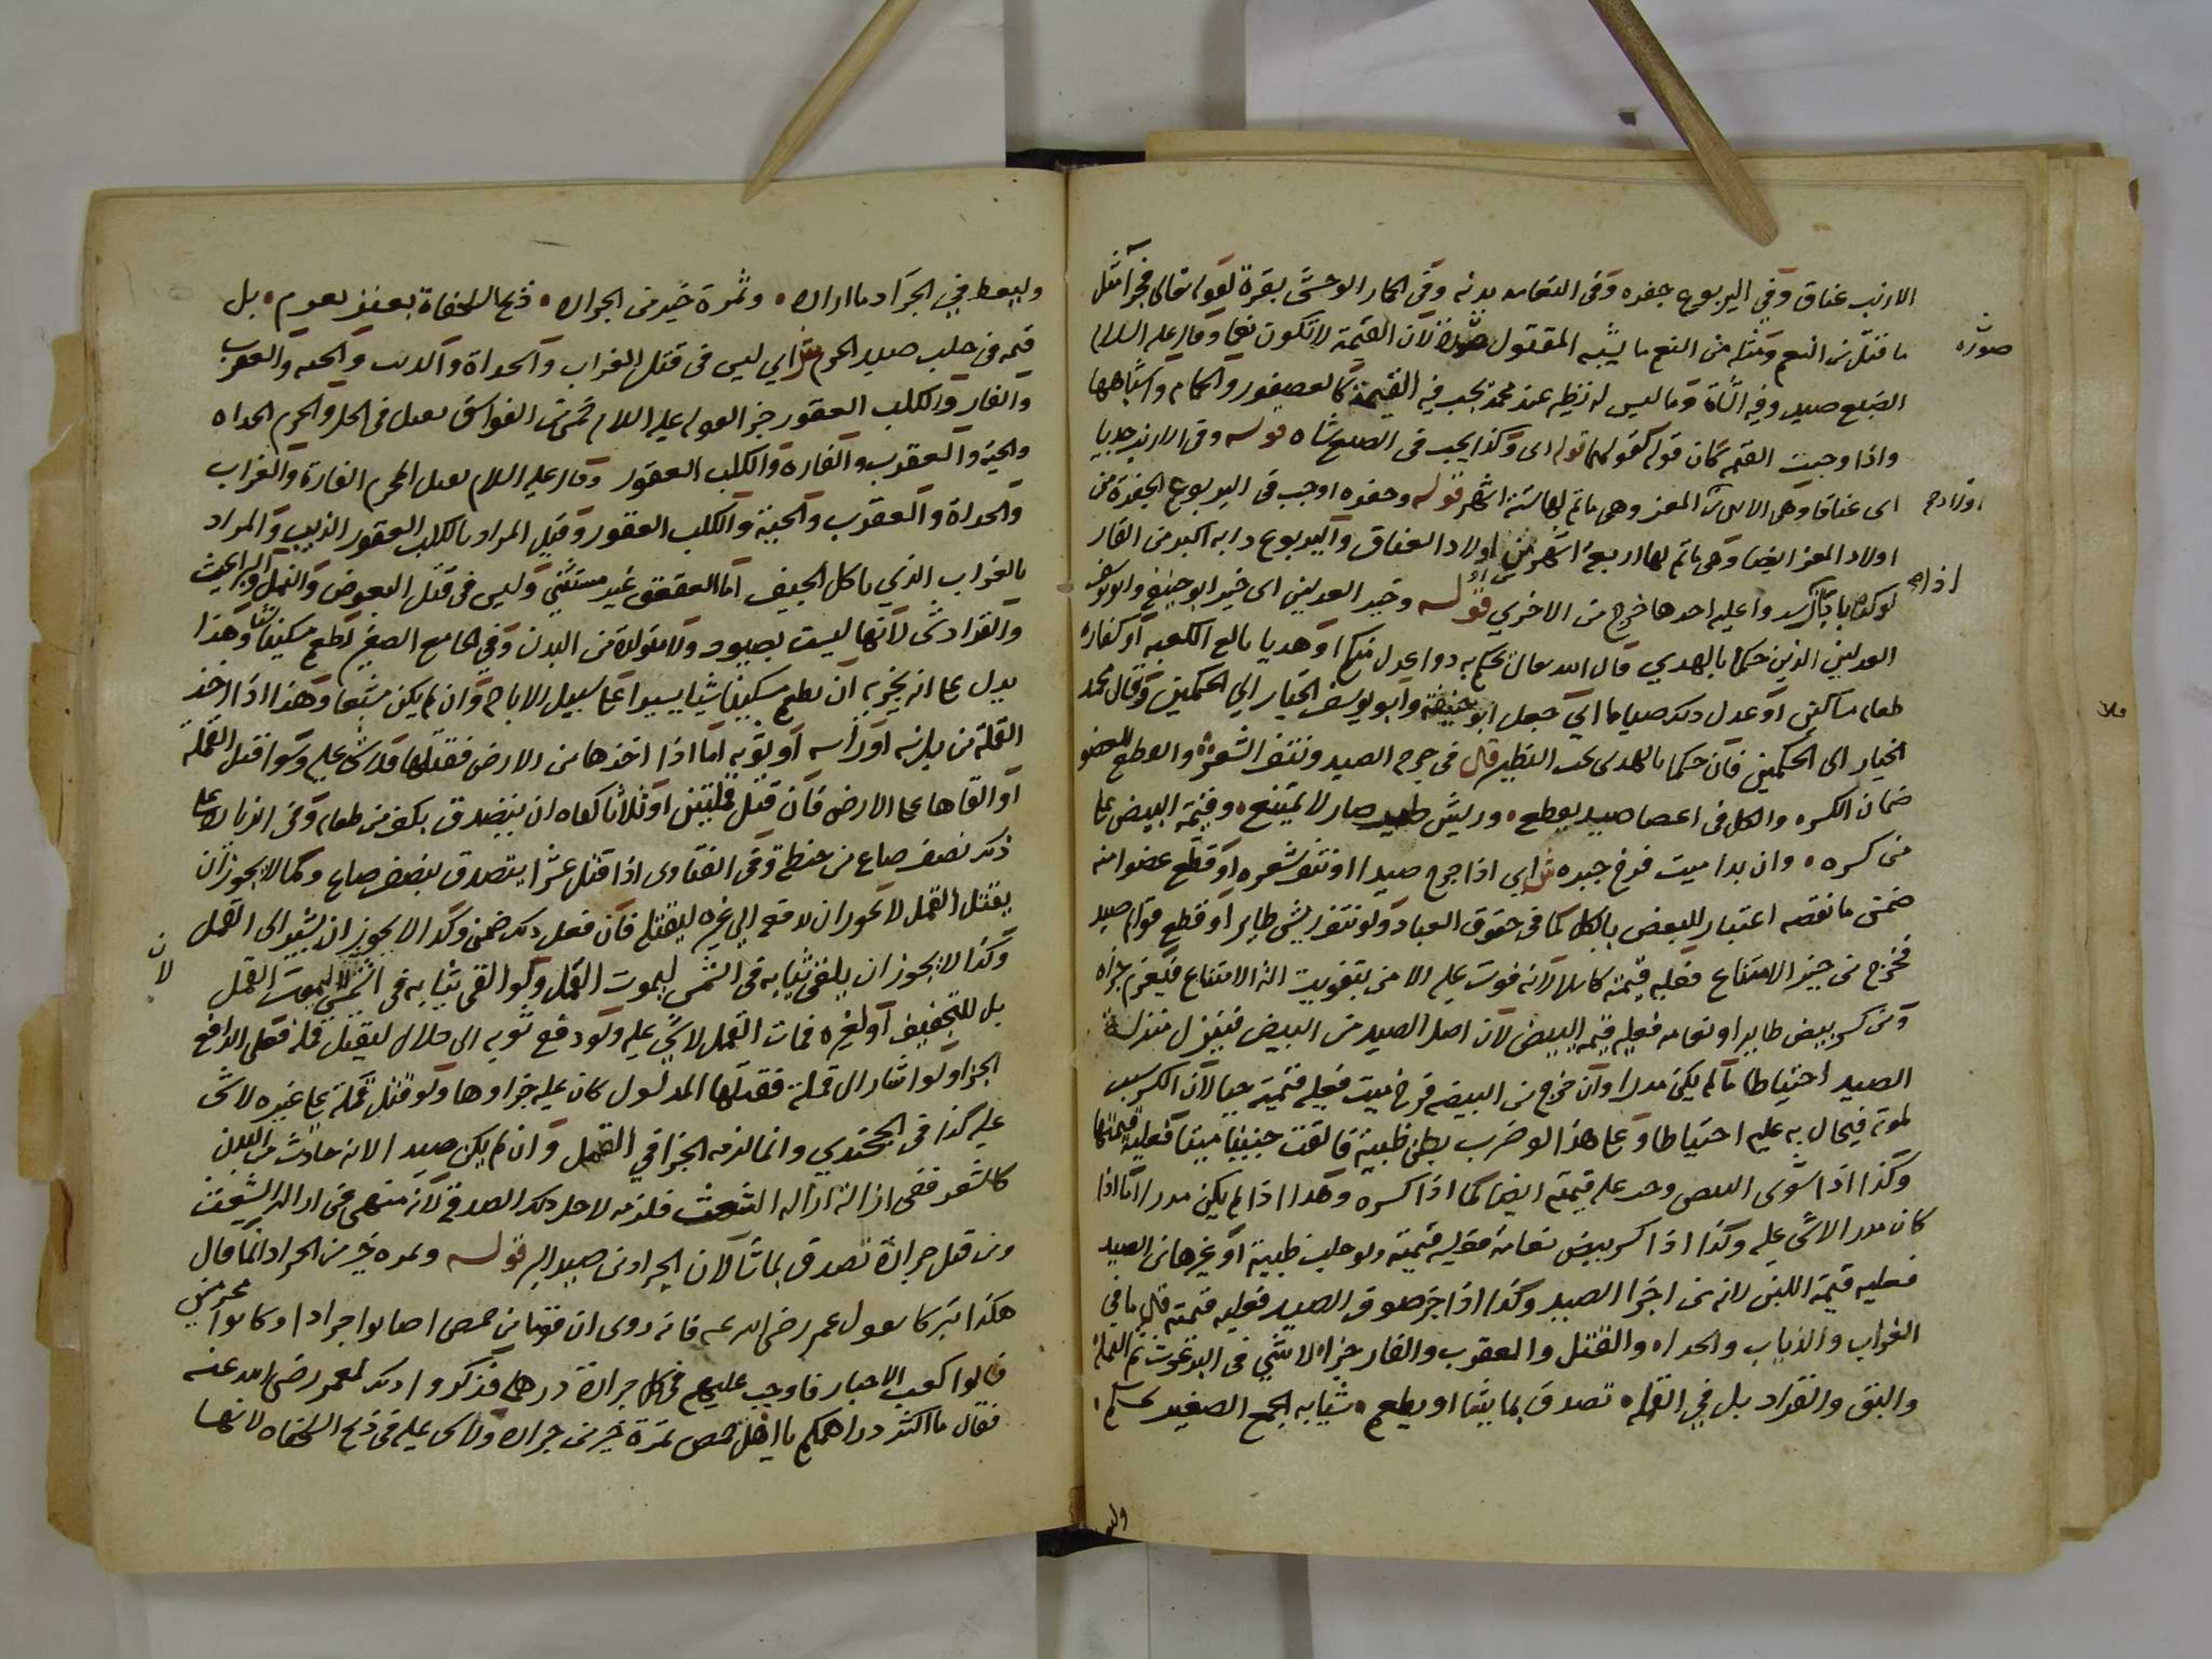 الارنب عناق وفي اليربوع جفره وفى النعامه بدنه وفى الحمار الوحشى بقرة لقوله تعالى فجزآ مثل
ما قتل من النعم ومثله من النعم ما يشبه المقتول صورة لان القيمة لا تكون نعما وقال عليه السلام
صورة
الضبع صيد وفيه الشاة وما ليس له نظير عند محمد يجب فيه القيمة كالعصفور والحمام واشباهها
واذا وجبت القيمه كان قوله كقولهما قوله اى وكذا يجب فى الضبع شاه قوله وفى الارنب
اى عناقا وهى الانثى من المعز وهى ما تم لها ستة اشهر قوله وجفره اوجب فى اليربوع الجفرة من
اولاد المعز ايضا وهى ما تم لها اربعة اشهر من اولاد العناق واليربوع دابه اكبر من الفار
قوله وخير العدلين اى خير ابو حنيفه وابو يوسف
العدلين الذين حكما بالهدي قال الله تعالى يحكم به ذوا عدل منكم هديا بالغ الكعبة او كفارة
طعام مساكين او عدل ذلك صياما اي جعل ابو حنيفة وابو يوسف الخيار الى الحكمين وقال محمد
الخيار الى الحكمين فان حكما بالهدى يجب النظير قال فى جرح الصيد ونتف الشعرة والقطع للعضو
ضمان الكسره والكل فى اعضا صيد يقطع وريش طير صار لا يمتنع وقيمة البيض على
من كسره وان بدا ميت فرخ جبره ش اي اذا جرح صيدا او نتف شعره او قطع عضوا منه
ضمن ما نقصه اعتبار للبعض بالكل كما فى حقوق العباد ولو نتف ريش طاير او قطع قوام صيد
فخرج من حيز الامتناع فعليه قيمته كاملا لانه فوت عليه الامن بتفويت الة الامتناع فيغرم جزاه
ومن كسر بيض طاير او نعامه فعليه قيمه البيض لان اصل الصيد من البيض فينزل منزلة
الصيد احتياطا ما لم يكن مدرا وان خرج من البيضه فرخ ميت فعليه قيمته حيا لان الكسر سبب
لموته فيحال به عليه احتياطا وعلى هذا لو ضرب بطن ظبية فالقت جنينا ميتا فعليه قيمتها
وكذا اذا شوى البيض وجب عليه قيمته ايضا كما اذا كسره وهذا اذا لم يكن مدرا اما اذا
كان مدرا لا شى عليه وكذا اذا كسر بيض نعامة فعليه قيمته ولو حلب ظبية او غيرها من الصيد
فعليه قيمة اللبن لانه من اجزا الصيد وكذا اذا جز صوف الصيد فعليه قيمته قال ما فى
الغراب والذياب والحداه والقتل والعقرب والفار جزاه لا شي فى البرغوث ثم النملة
والبق والقراد بل في القمله تصدق بما يشا او يطعم شيا به الجمع الصغير يحكم
وليـ
وليعط فيي الجراد ما اراده وثمرة خير من الجراده ذبح السلحفاة بعفو يعوم بل
قيمه فى حلب صيد الحرم ش اي ليس فى قتل الغراب والحداة والذيب والحيه والعقرب
والفار والكلب العقور جزا لقوله عليه السلام خمس من الفواسق يقتلن فى الحل والحرم الحداه
والحية والعقرب والفارة والكلب العقور وقال عليه السلام يقتل المحرم الفارة والغراب
والحداة والعقرب والحية والكلب العقور وقيل المراد بالكلب العقور الذيب والمراد
بالغراب الذي ياكل الجيف اما العقعق غير مستثنى وليس فى قتل البعوض والنمل والبراغيث
والقراد شى لانها ليست بصيود ولا متولدة من البدن وفى الجامع الصغير اطعم مسكينا شيا وهذا
يدل على انه يجزيه ان يطعم مسكينا شيا يسيرا على سبيل الاباحة وان لم يكن مشبعا وهذا اذا اخذ
القملة من بدنه او راسه او ثوبه اما اذا اخذها من الارض فقتلها فلا شى عليه وسوا قتل القملة
او القاها على الارض فان قتل قملتين او ثلاثا كفاه ان يتصدق بكف من طعام وفى الزيادة على
ذلك نصف صاع من حنطة وفى الفتاوى اذا قتل عشرا يتصدق بنصف صاع وكما لا يجوز ان
يقتل القمل لا يجوز ان يدفعه الى غيره ليقتله فان فعل ذلك ضمن وكذا لا يجوز ان يشير الى القمل
وكذا لا يجوز ان يلقى ثيابه فى الشمس ليموت القمل ولو القى ثيابه فى الشمس لا ليموت القمل
بل للتجفيف او لغيره فمات القمل لا شي عليه ولو دفع ثوبه الى حلال ليقتل قمله فعلى الدافع
الجزا ولو اشار الى قملة فقتلها المدلول كان عليه جزاوها ولو قتل قملة على غيره لا شى
عليه كذا فى الخجندي وانما لزمه الجزا في القمل وان لم يكن صيدا لانه حادث من البدن
كالشعر ففى ازالته ازاله الشعث فلزمه لاجل ذلك الصدقة لانه منهى عن ازاله الشعث
ومن قتل جرادة تصدق بما شا لان الجراد من صيد البر قوله وتمره خير من الجراد انما قال
هكذا تبركا بقول عمر رضى الله عنه فانه روى ان قوما من حمص اصابوا جرادا وكانوا محرمين
فسالوا كعب الاحبار فاوجب عليهم فى كل جرادة درهما فذكروا ذلك لعمر رضى الله عنه
فقال ما اكثر دراهمكم يا اهل حمص تمرة خير من جراده ولا شى عليه فى ذبح السلحفاه لانها